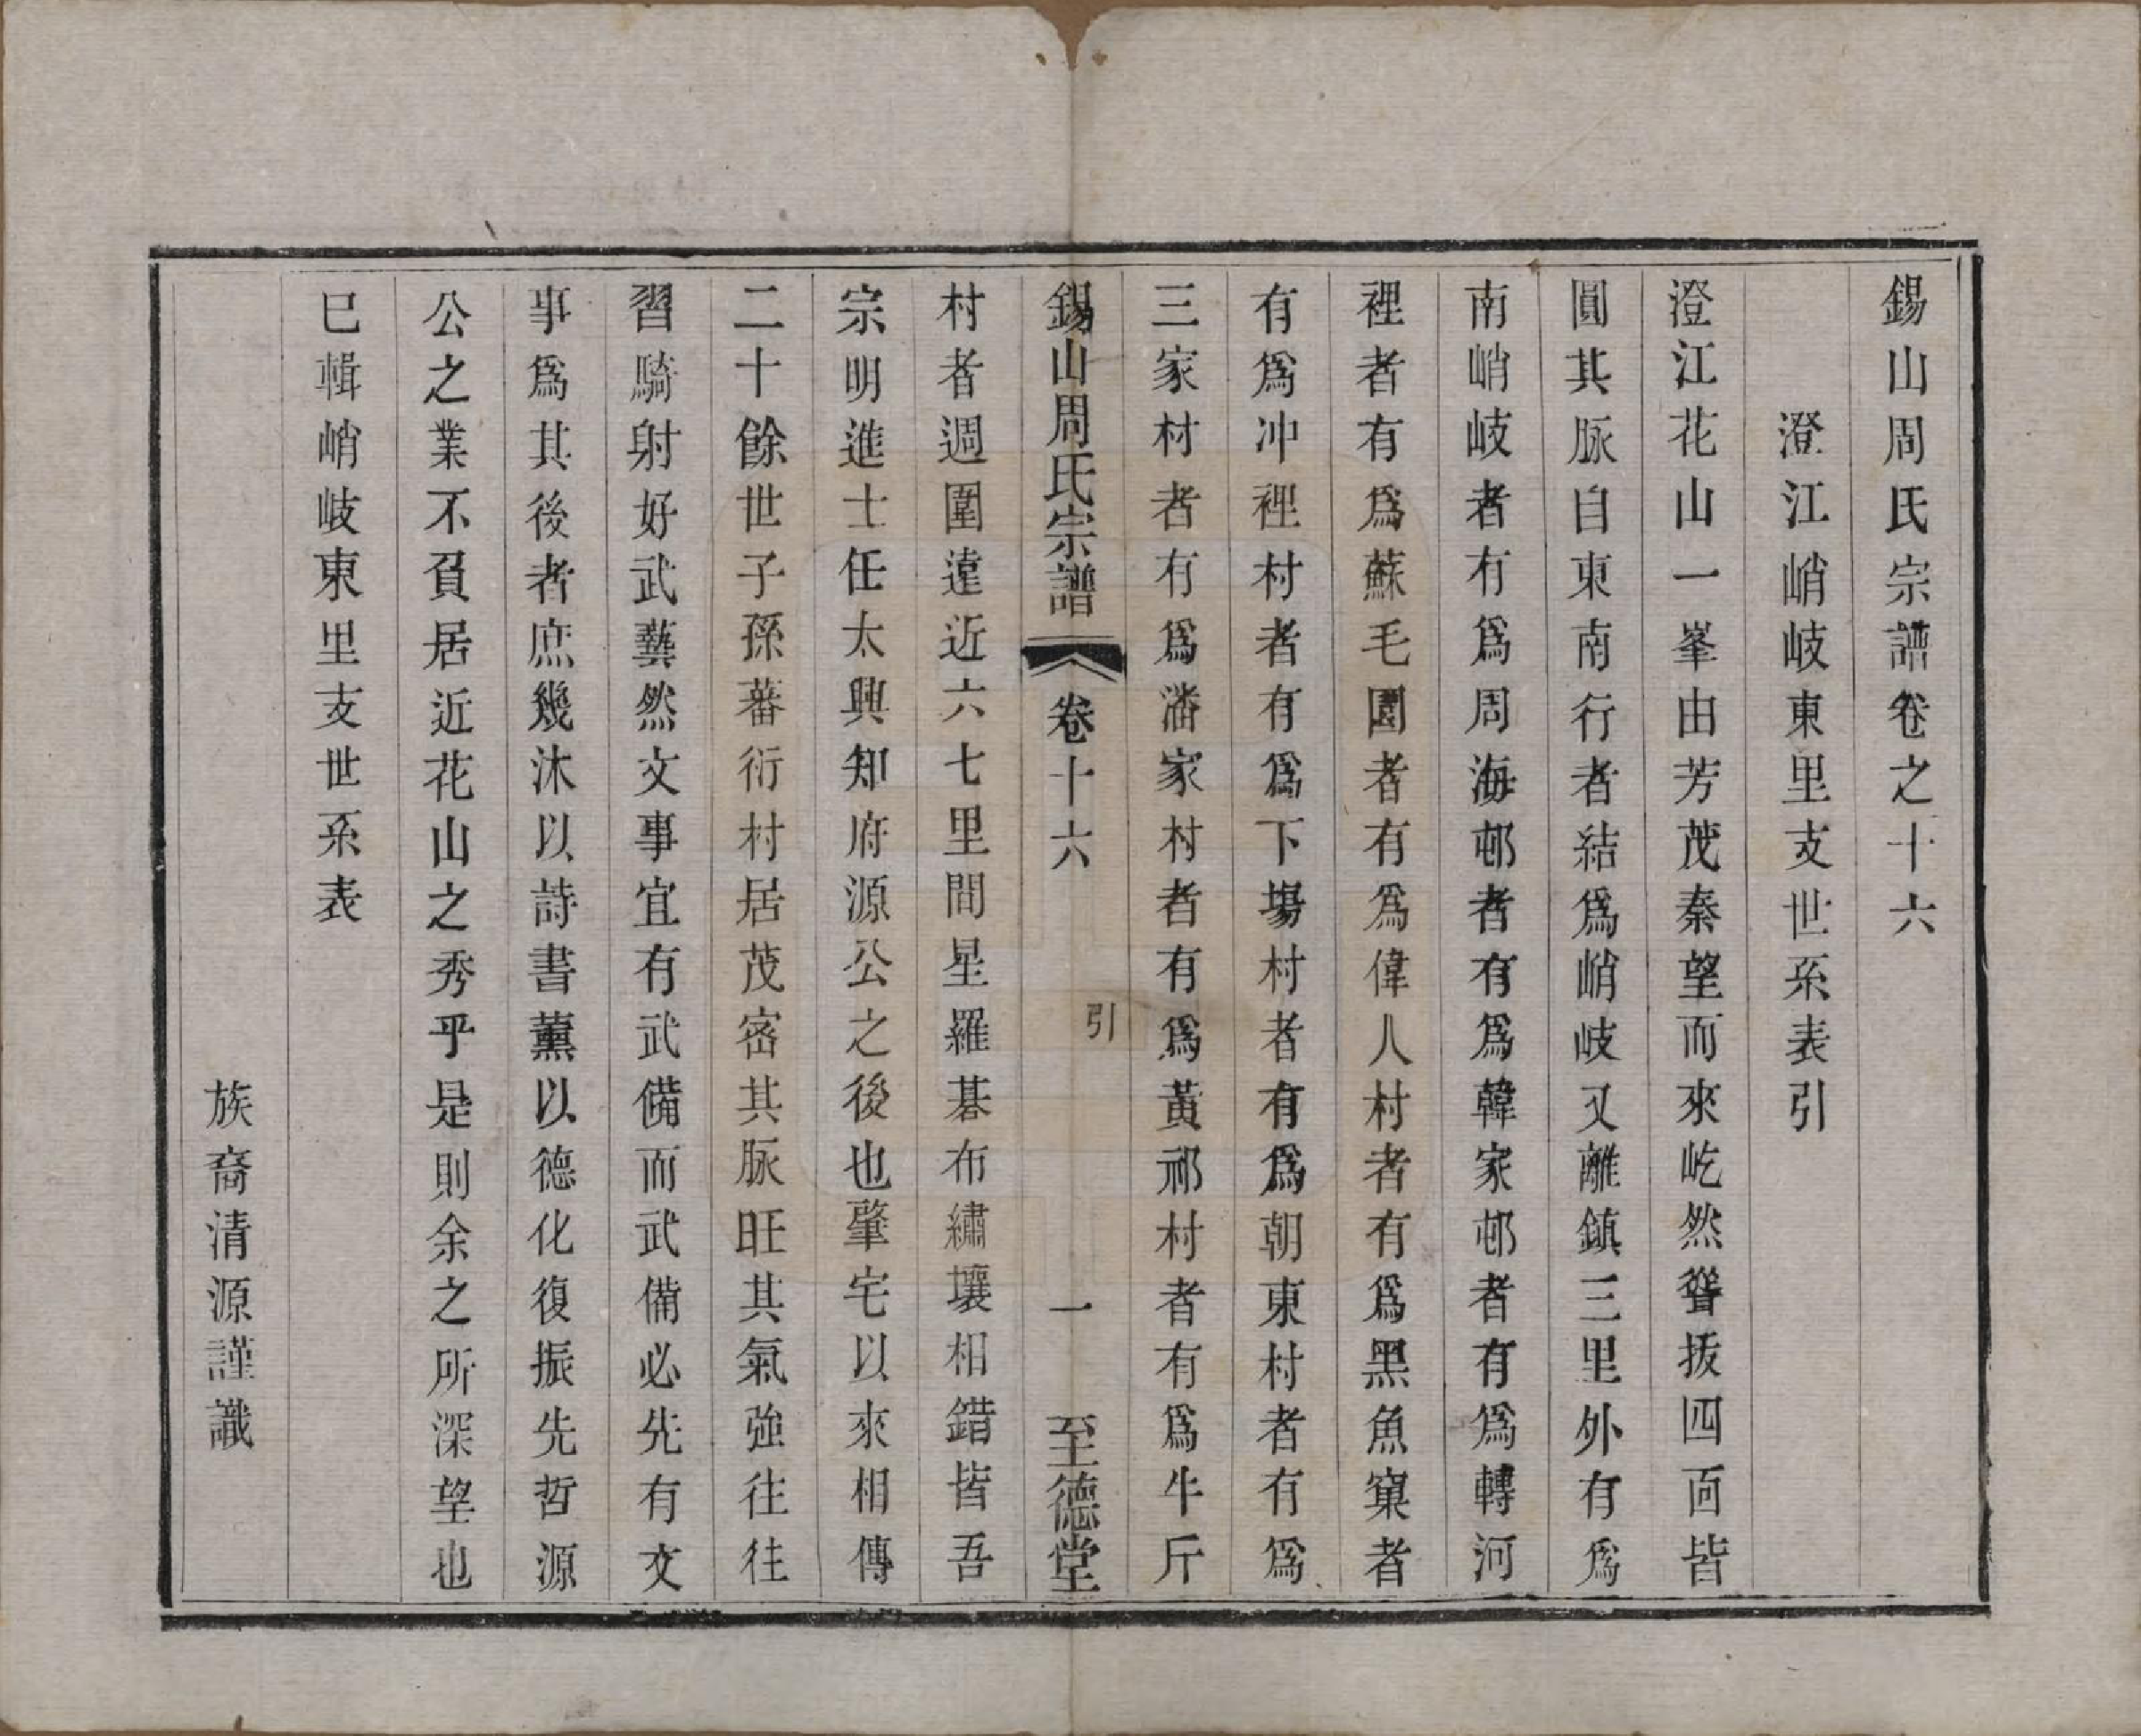 錫山周氏宗譜卷之十六
澄江峭岐東里支世系表引
澄江花山一峯由芳茂秦望而來屹然聳拔四面皆
圓其脈自東南行者結爲峭岐又離鎮三里外有爲
南峭岐者有爲周海邨者有爲韓家邨者有爲轉河
裡者有爲蘇毛園者有爲偉人村者有爲黑魚窠者
有爲冲裡村者有爲下塲村者有爲朝東村者有爲
三家村者有爲潘家村者有爲黃祁村者有爲牛斤
錫山周氏宗譜 卷十六 引 一 至德堂
村者週圍遠近六七里間星羅碁布繡壤相錯皆吾
宗明進士任太興知府源公之後也肇宅以來相傳
二十餘世子孫蕃衍村居茂密其脈旺其氣強往往
習騎射好武藝然文事宜有武備而武備必先有文
事爲其後者庶幾沐以詩書薰以德化復振先哲源
公之業不負居近花山之秀乎是則余之所深望也
巳輯峭岐東里支世系表
族裔清源謹識